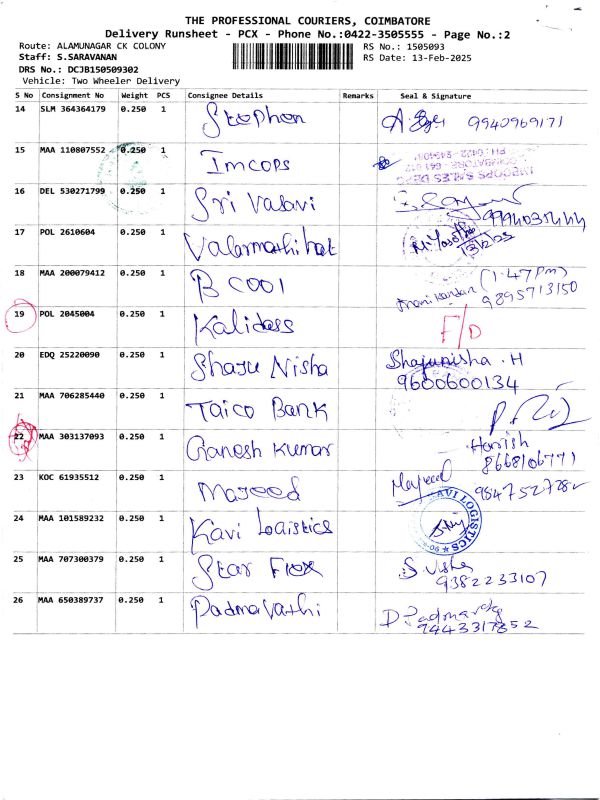 THE PROFESSIONAL COURIERS, COIMBATORE
Delivery Runsheet - PCX - Phone No.:0422-3505555 - Page No.:2
Route: ALAMUNAGAR CK COLONY
RS No.: 1505093
Staff: S.SARAVANAN
RS Date: 13-Feb-2025
DRS No.: DCJB150509302
Vehicle: Two Wheeler Delivery
S No Consignment No Weight PCS Consignee Details Remarks Seal & Signature
14 SLM 364364179 0.250 1 Stephen 9940969171
15 MAA 110807552 0.250 1 Imcops
16 DEL 530271799 0.250 1 Sri Vasavi
17 POL 2610604 0.250 1 Valarmathi hat
13/2/25
18 MAA 200079412 0.250 1 B COOl (1.47 pm)
9895713150
19 POL 2045004 0.250 1 Kalidass F/D
20 EDQ 25220090 0.250 1 Shaju Nisha Shajunisha . H
9600600134
21 MAA 706285440 0.250 1 Taico Bank
22 MAA 303137093 0.250 1 Ganesh Kumar Harish
8668106771
23 KOC 61935512 0.250 1 Majeed Majeed
24 MAA 101589232 0.250 1 Kavi Logistics KAVI LOGISTICS
25 MAA 707300379 0.250 1 Star Flex
9382233107
26 MAA 650389737 0.250 1 Padmavathi
9443317352